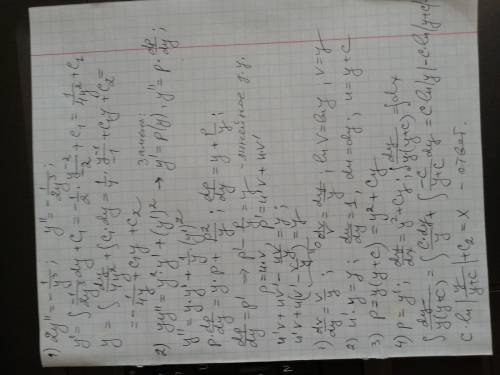 1) 2y'' = -1/y³; y'' = -1/2y³;
y' = ∫ -1/2y³ dy + C₁ = -1/2 · y⁻²/-2 + C₁ = 1/4y² + C₁
y = ∫ dy/4y² + ∫ C₁ · dy = 1/4 · y⁻¹/-1 + C₁y + C₂ =
= -1/4y + C₁y + C₂
Замена:
2) yy'' = y²·y' + (y')² → y' = p(y), y'' = p · dp/dy;
y'' = y·y' + 1/y (y')²
p · dp/dy = y·p + p²/y; dp/dy = y + p/y;
dp/dy = p' → p' - p/y = y - линейное д.у.
p = u·v p' = u'v + uv'
u'v + uv' - uv/y = y;
u'v + u(v' - v/y) = y
0
1) dv/dy = v/y; dv/v = dy/y; ln v = ln y; v = y
2) u'·y = y; du/dy = 1; du = dy; u = y + C
3) p = y(y+C) = y² + Cy
4) p = y'; dy/dx = y² + Cy; ∫ dy/y(y+C) = ∫ dx
∫ dy/y(y+C) = ∫ C·dy/y + ∫ C/y+C dy = C ln|y| - C ln|y+C|
C·ln|y/y+C| + C₂ = x - ответ.